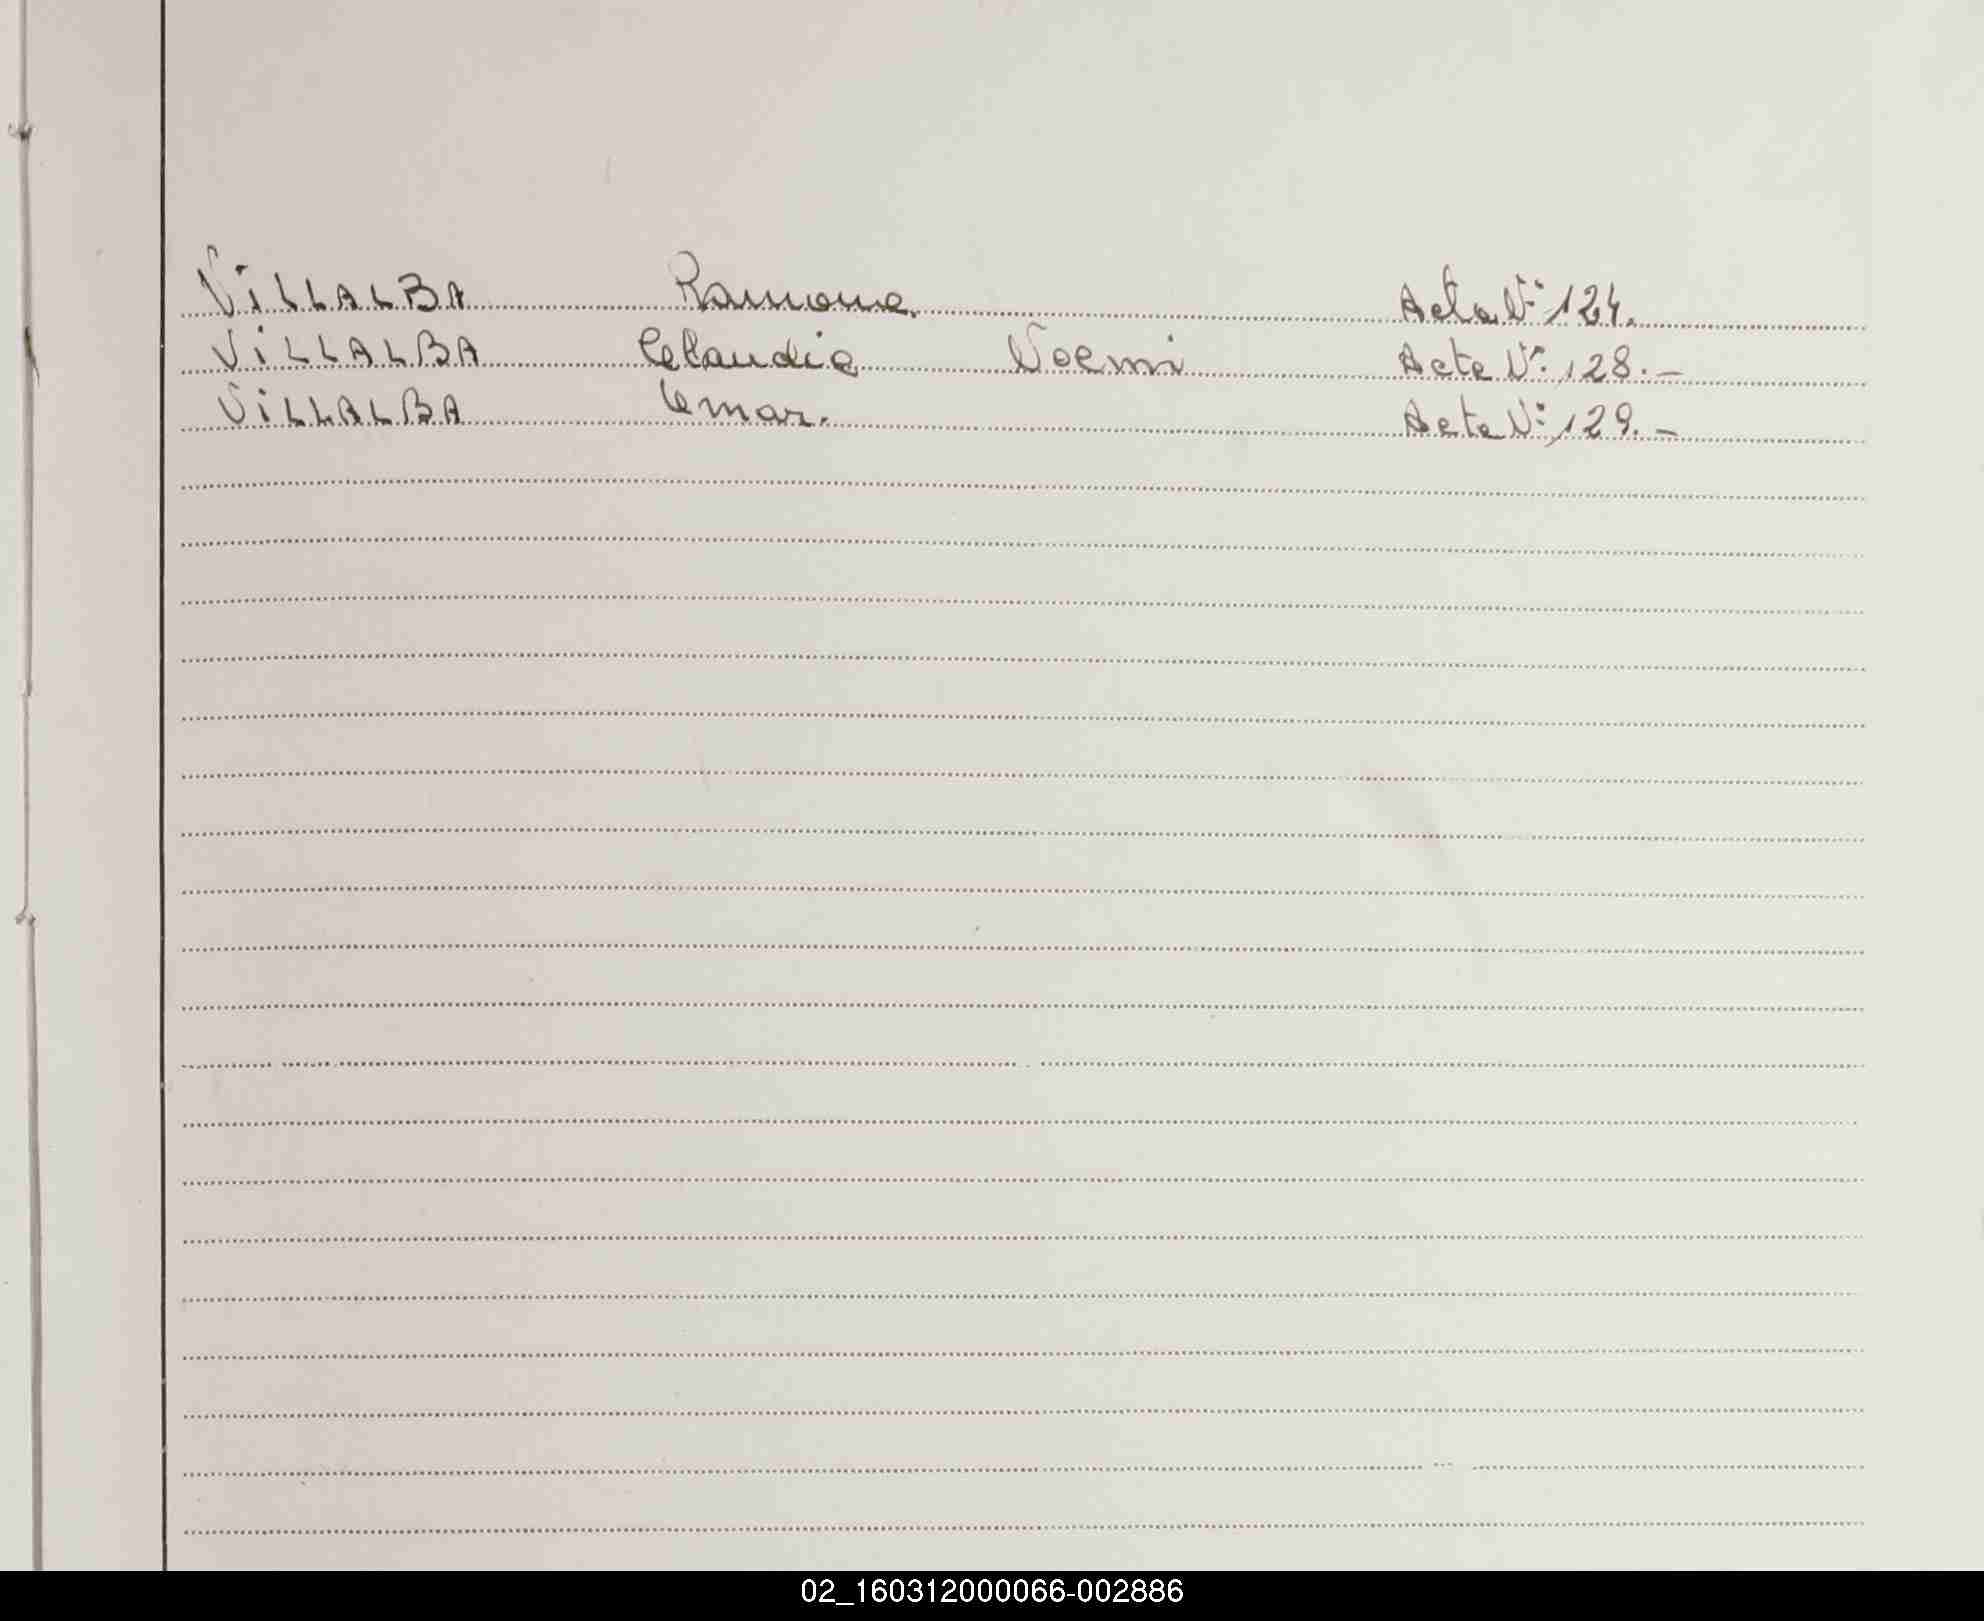 VILLALBA Ramona. Acta Nº 124.
VILLALBA Claudia Noemi Acta Nº 128.-
VILLALBA Omar. Acta Nº 129.-
02_160312000066-002886